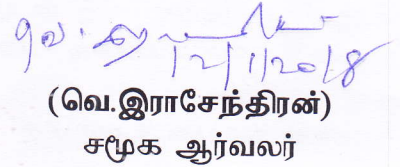 12/1/2018
(வெ.இராசேந்திரன்)
சமூக ஆர்வலர்